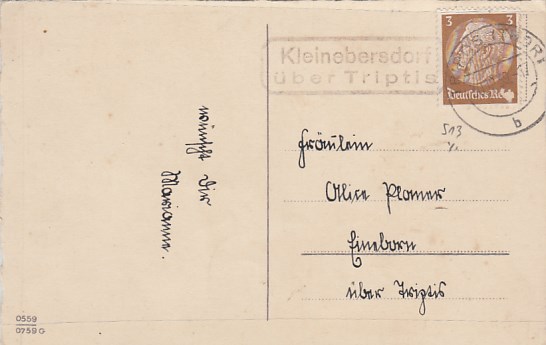 Kleinebersdorf
über Triptis
3 3
Deutsches Reich
b
513
wünscht Dir
Marianne.
Fräulein
Alice Planer
Eineborn
über Triptis
0559
0759 G